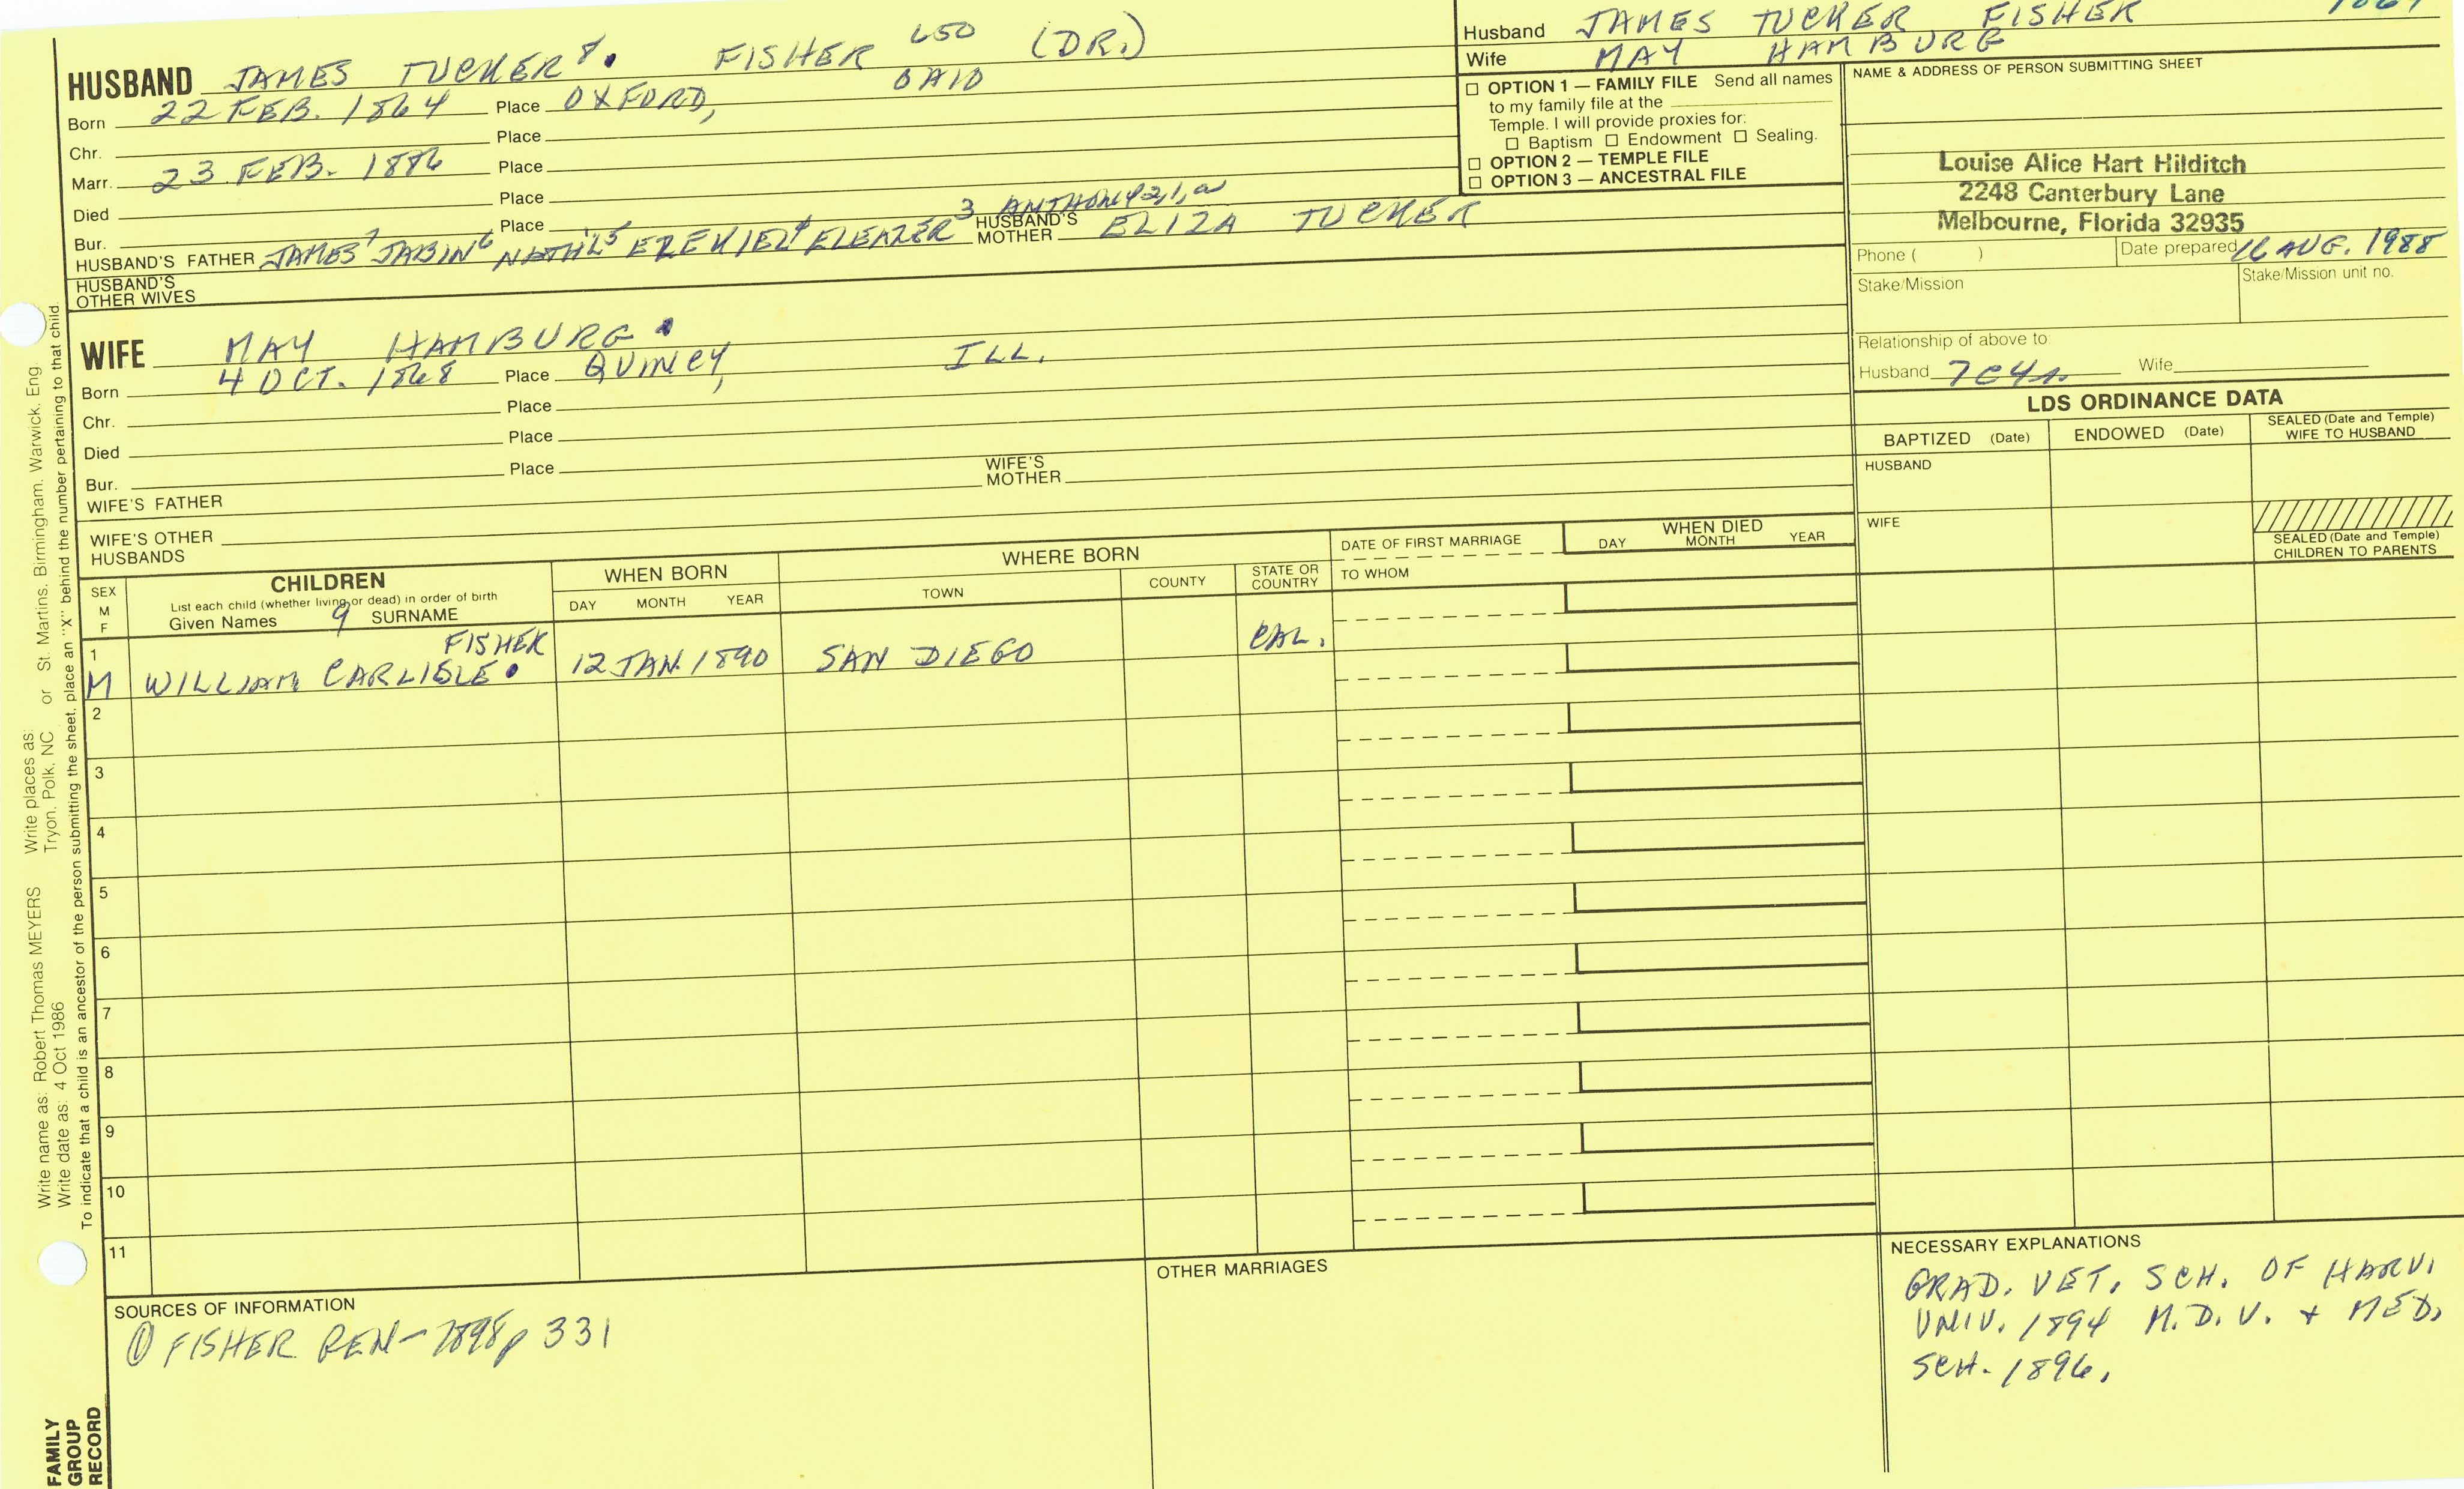 HUSBAND JAMES TUCKER 8. FISHER 650 (DR.)
Born 22 FEB. 1864 Place OXFORD, OHIO
Chr. Place
Marr. 23 FEB. 1886 Place
Died Place
Bur. Place
HUSBAND'S FATHER JAMES7 JABIN6 NATH'L5 EZEKIEL4 ELEAZER3 ANTHONY2,1,a HUSBAND'S MOTHER ELIZA TUCKER
HUSBAND'S OTHER WIVES
WIFE MAY HAMBURG.
Born 4 OCT. 1868 Place QUINCY, ILL.
Chr. Place
Died Place
Bur. Place
WIFE'S FATHER WIFE'S MOTHER
WIFE'S OTHER HUSBANDS
Husband JAMES TUCKER FISHER
Wife MAY HAMBURG
OPTION 1 — FAMILY FILE Send all names
to my family file at the
Temple. I will provide proxies for:
Baptism Endowment Sealing.
OPTION 2 — TEMPLE FILE
OPTION 3 — ANCESTRAL FILE
NAME & ADDRESS OF PERSON SUBMITTING SHEET
Louise Alice Hart Hilditch
2248 Canterbury Lane
Melbourne, Florida 32935
Phone ( ) Date prepared 16 AUG. 1988
Stake/Mission Stake/Mission unit no.
Relationship of above to:
Husband 7C4r. Wife
LDS ORDINANCE DATA
BAPTIZED (Date) ENDOWED (Date) SEALED (Date and Temple) WIFE TO HUSBAND
HUSBAND
WIFE
SEALED (Date and Temple) CHILDREN TO PARENTS
SEX M F
CHILDREN
List each child (whether living or dead) in order of birth
Given Names 9 SURNAME
WHEN BORN
DAY MONTH YEAR
WHERE BORN
TOWN COUNTY STATE OR COUNTRY
DATE OF FIRST MARRIAGE
TO WHOM
WHEN DIED
DAY MONTH YEAR
1 FISHER
M WILLIAM CARLISLE. 12 JAN. 1890 SAN DIEGO CAL.
2
3
4
5
6
7
8
9
10
11
SOURCES OF INFORMATION
① FISHER GEN-1898p 331
OTHER MARRIAGES
NECESSARY EXPLANATIONS
GRAD. VET. SCH. OF HARV.
UNIV. 1894 M.D.V. + MED.
SCH. 1896.
Write name as: Robert Thomas MEYERS Write places as:
Write date as: 4 Oct 1986 Tryon, Polk, NC or St. Martins, Birmingham, Warwick, Eng.
To indicate that a child is an ancestor of the person submitting the sheet, place an "X" behind the number pertaining to that child.
FAMILY
GROUP
RECORD